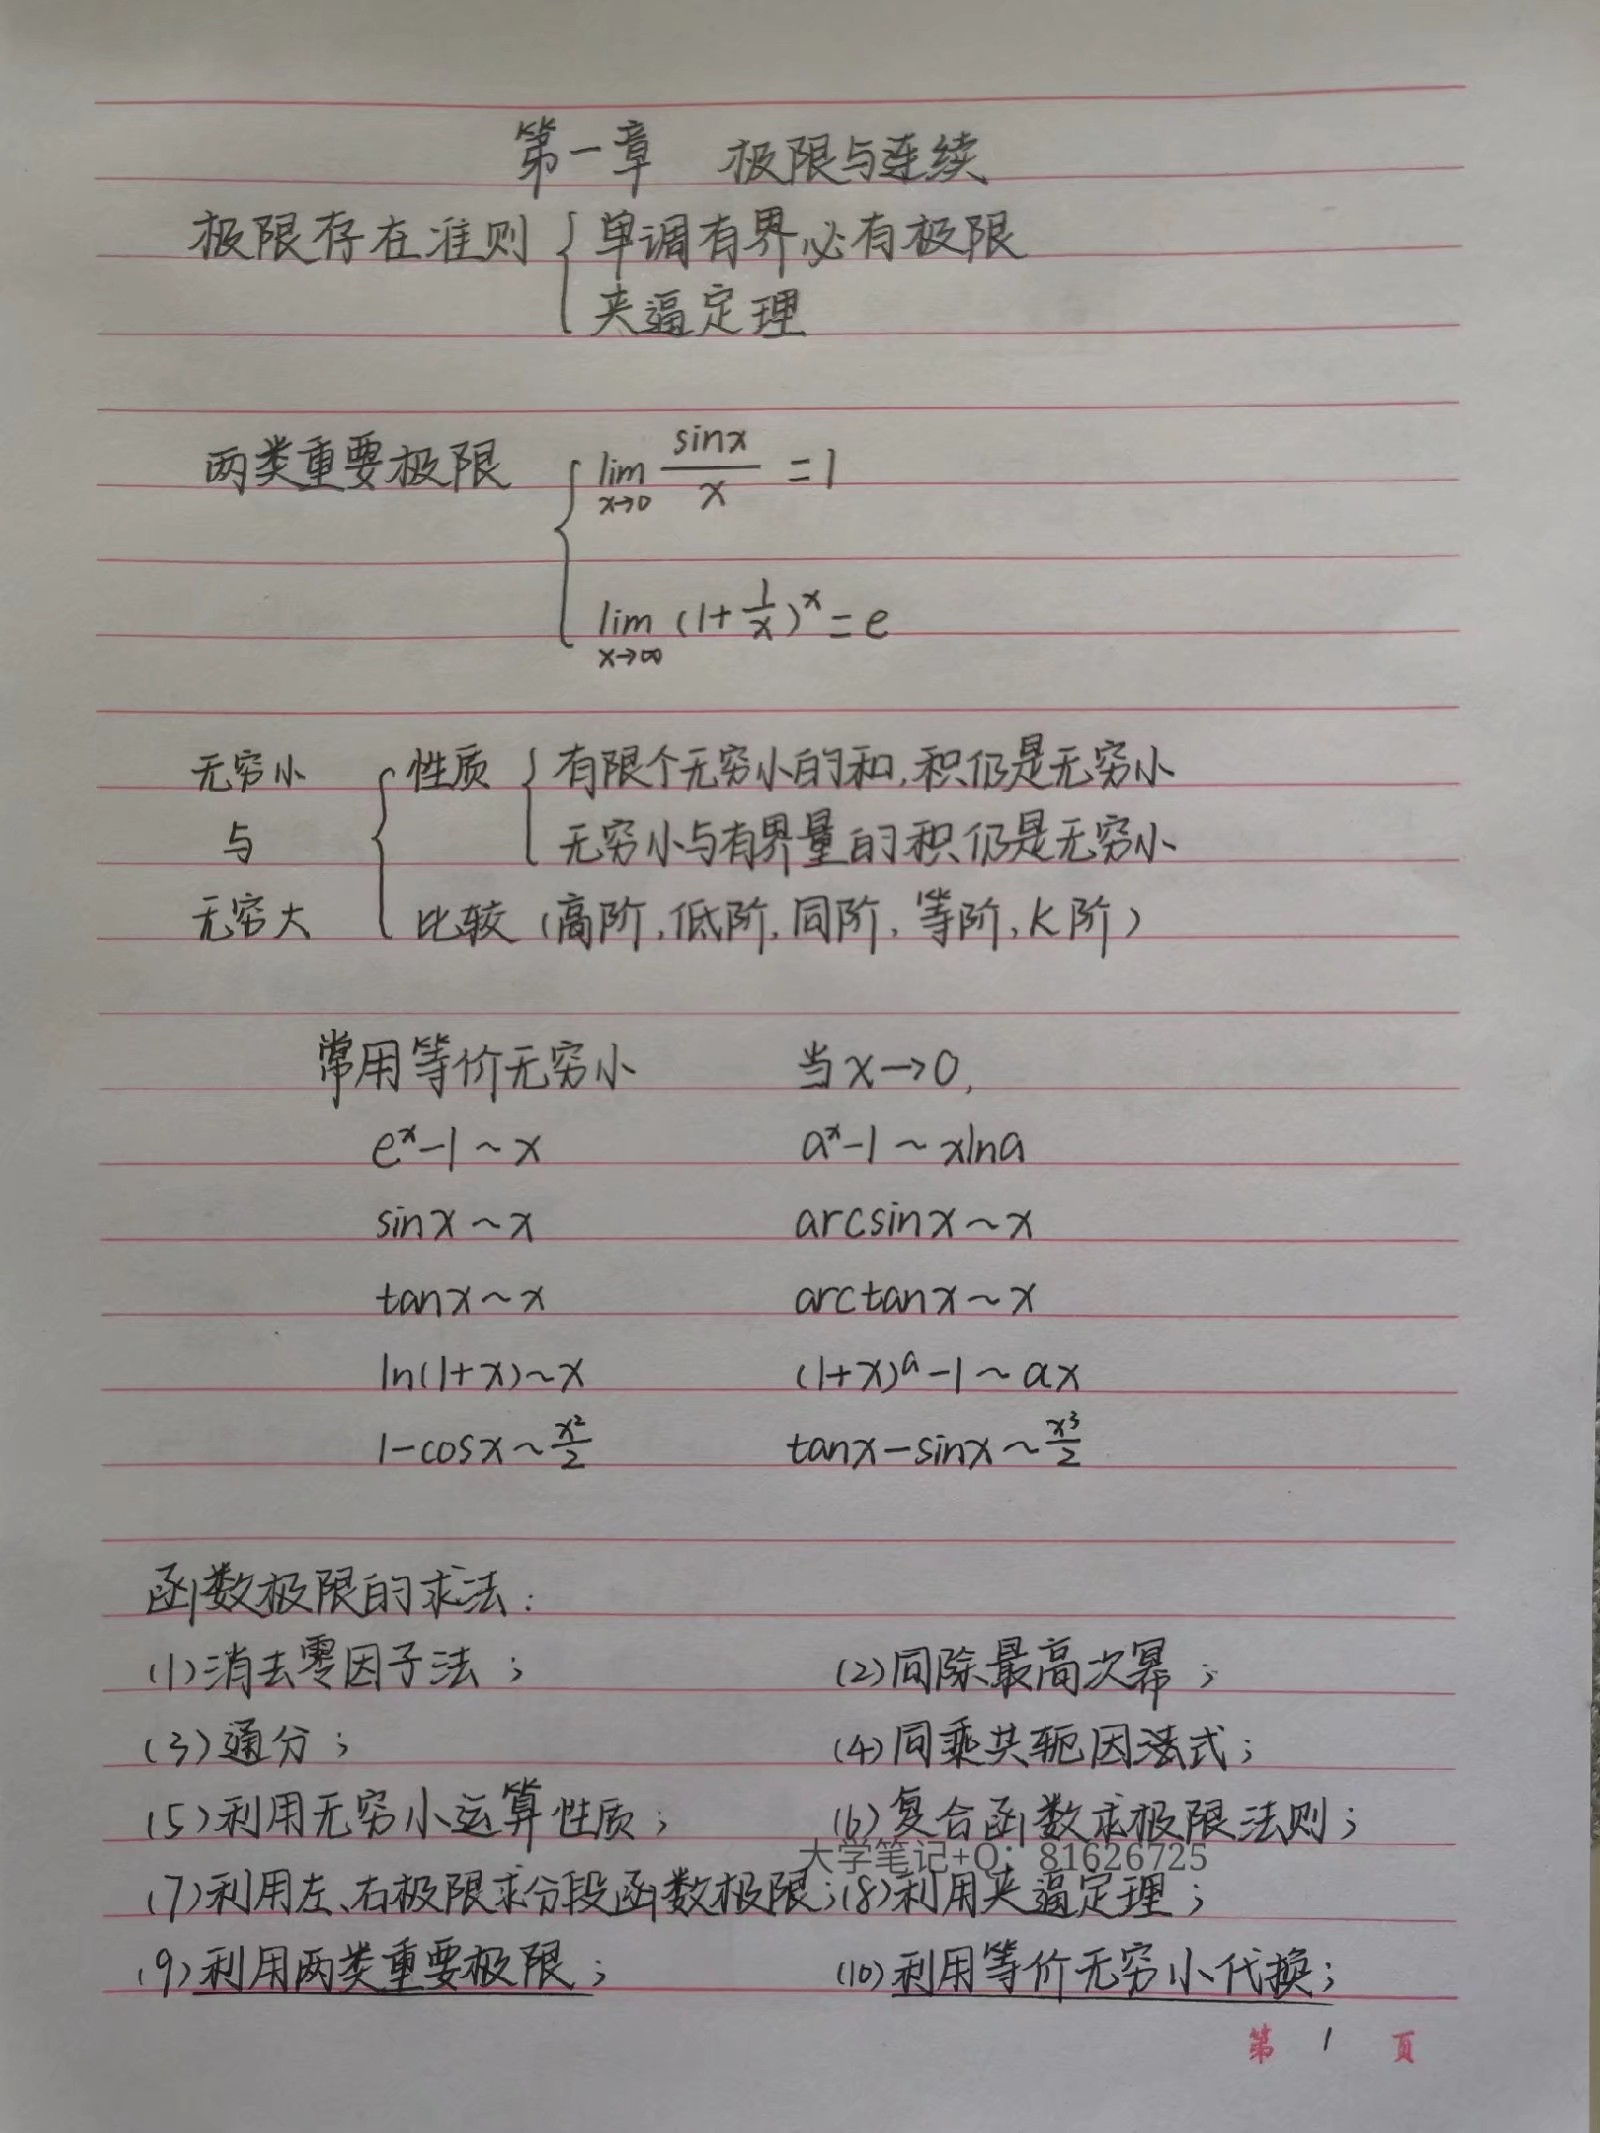 第一章 极限与连续
极限存在准则 { 单调有界必有极限
夹逼定理
两类重要极限 { lim x→0 sinx/x = 1
lim x→∞ (1+1/x)^x = e
无穷小 { 性质 { 有限个无穷小的和,积仍是无穷小
与 无穷小与有界量的积仍是无穷小
无穷大 比较(高阶,低阶,同阶,等阶,k阶)
常用等价无穷小 当x→0,
e^x-1~x a^x-1~xlna
sinx~x arcsinx~x
tanx~x arctanx~x
ln(1+x)~x (1+x)^a-1~ax
1-cosx~x²/2 tanx-sinx~x³/2
函数极限的求法:
(1)消去零因子法; (2)同除最高次幂;
(3)通分; (4)同乘共轭因式;
(5)利用无穷小运算性质; (6)复合函数求极限法则;
大学笔记+Q:81626725
(7)利用左、右极限求分段函数极限;(8)利用夹逼定理;
(9)利用两类重要极限; (10)利用等价无穷小代换;
第 1 頁